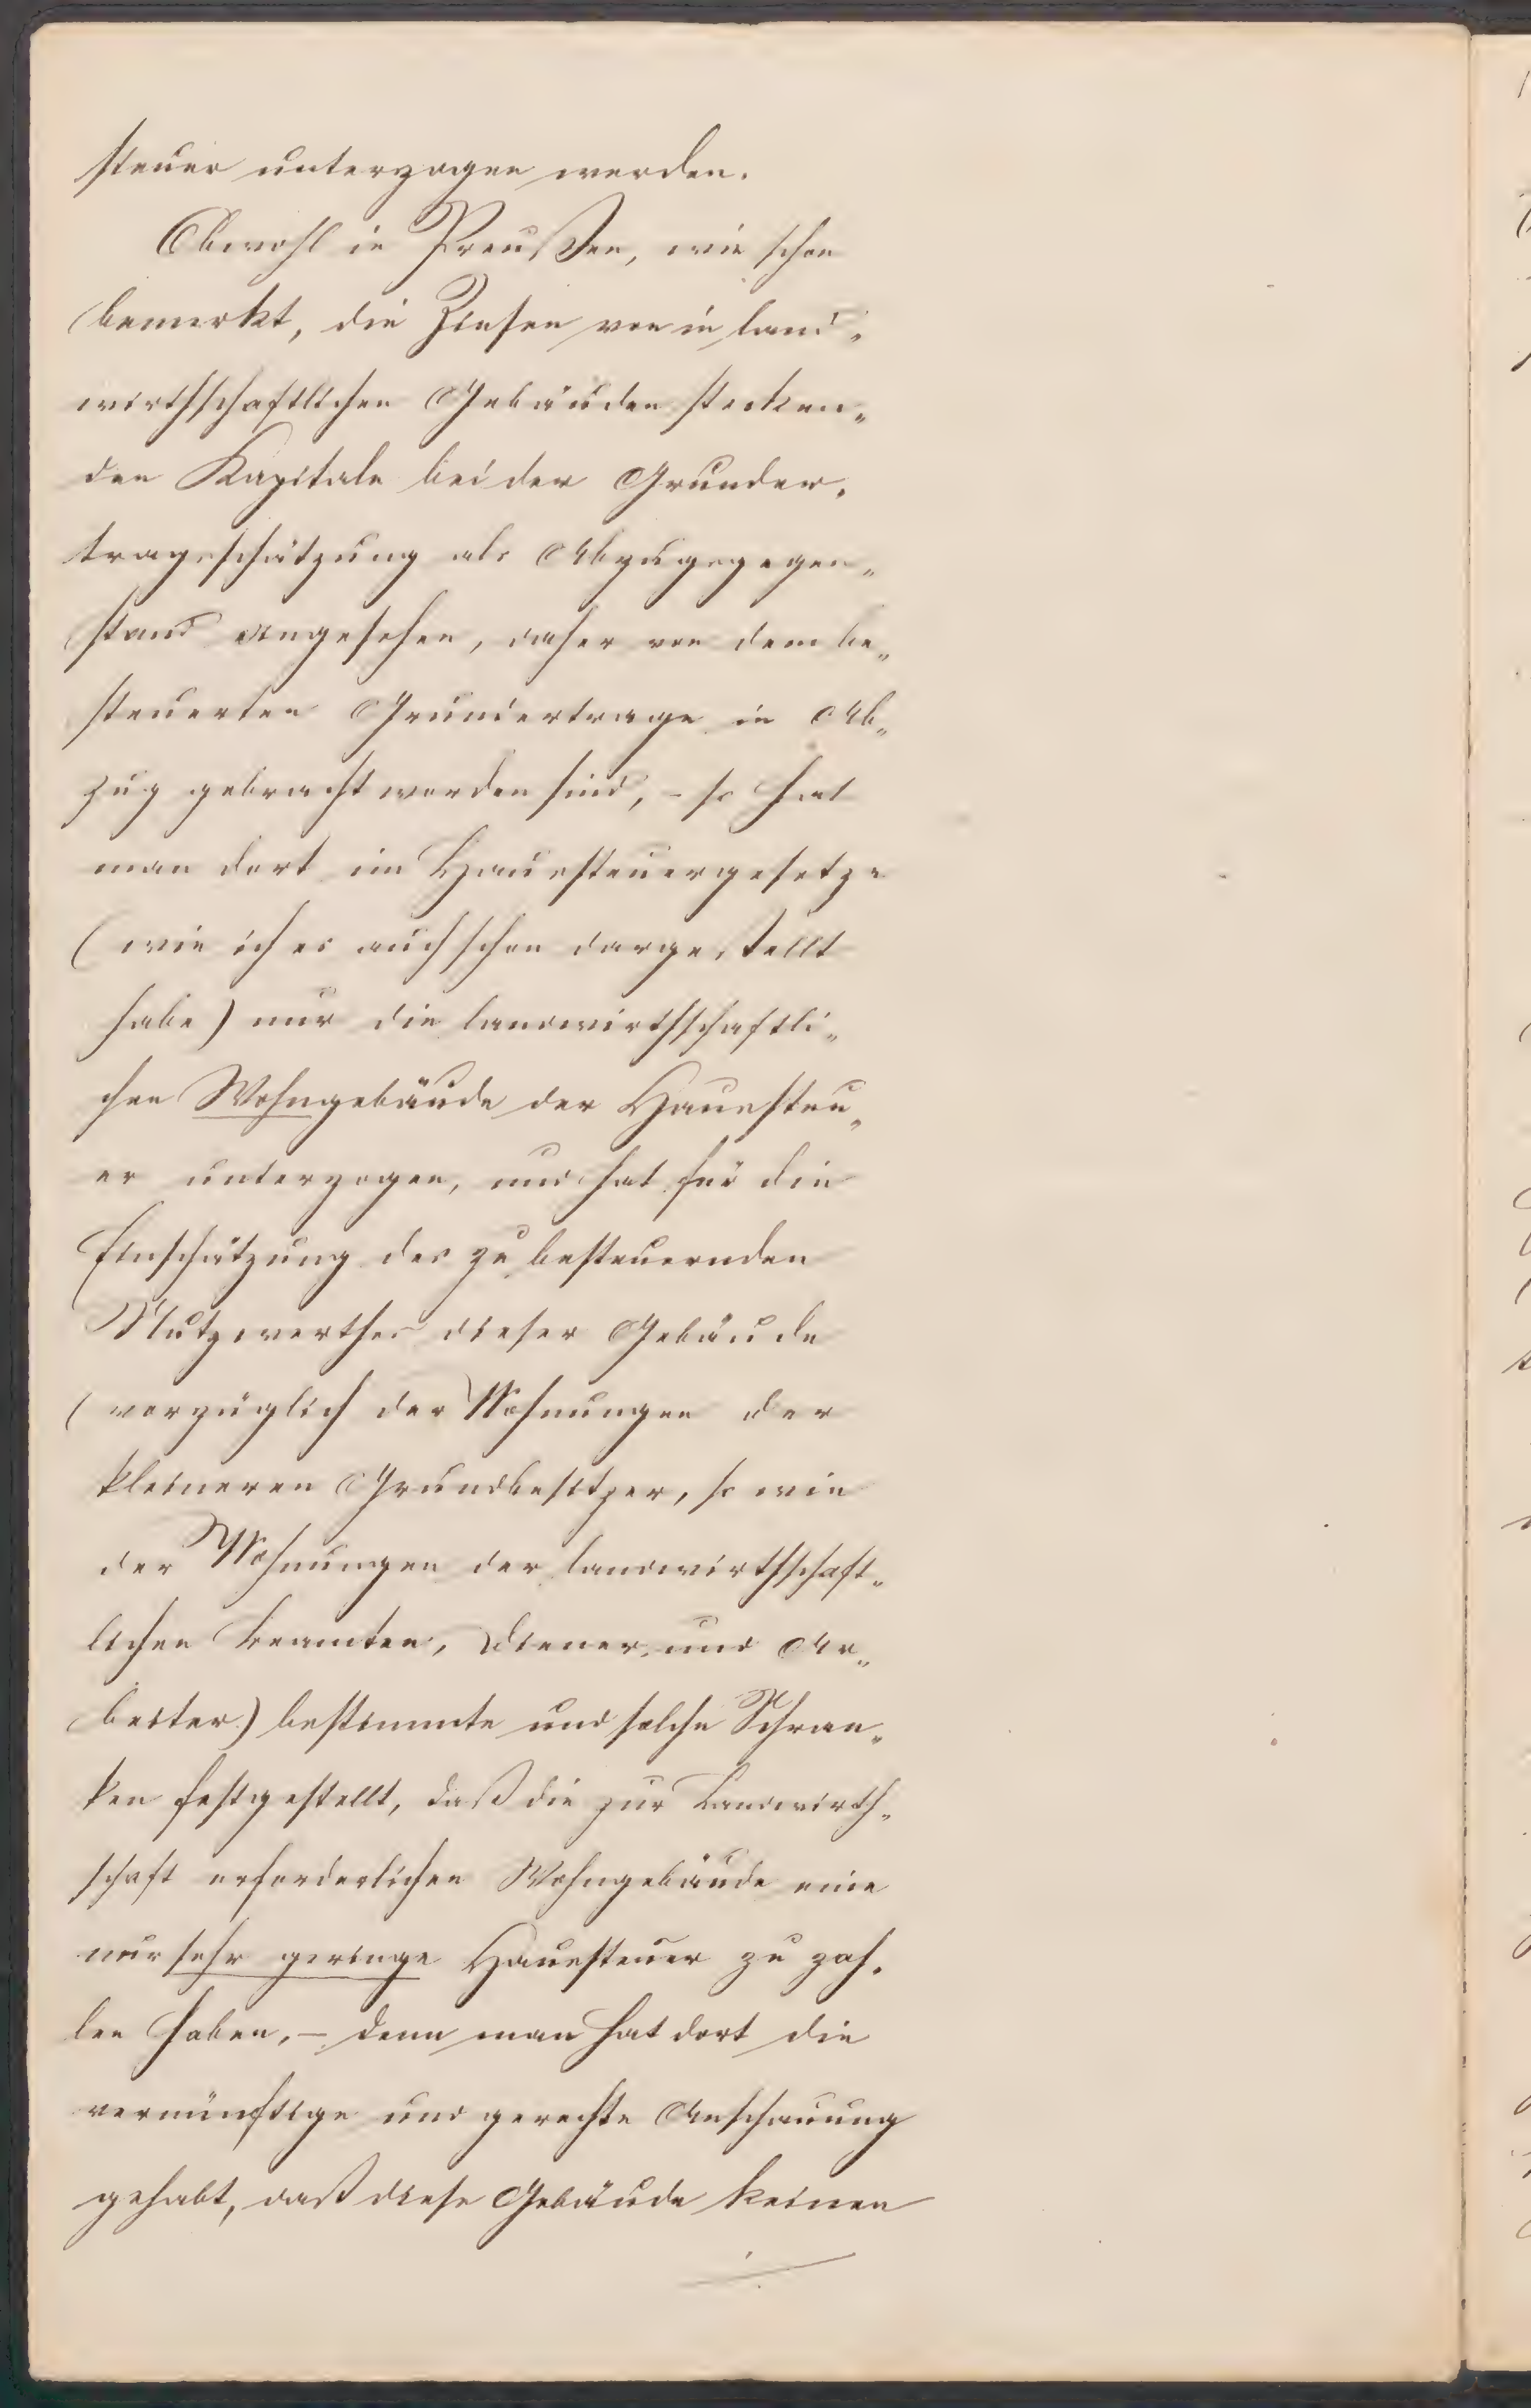 steuer unterzogen werden.
Obwohl in Preußen, wie schon
bemerkt, die Zinsen von in land„
wirthschaftlichen Gebäuden stecken„
den Kapitale bei der Grunder„
tragsschätzung als Abzugsgegen„
stand angesehen, daher von dem be„
steuerten Grundertrage in Ab„
zug gebracht worden sind, – so hat
man dort im Haussteuergesetze
(wie ich es auch schon dargestellt
habe) nur die landwirthschaftli„
chen Wohngebäude der Haussteu„
er unterzogen, und hat für die
Einschätzung des zu besteuernden
Nutzwerthes dieser Gebäude
(vorzüglich der Wohnungen der
kleineren Grundbesitzer, so wie
der Wohnungen der landwirthschaft„
lichen Beamten, Diener und Ar„
beiter) bestimmte und solche Schran„
ken festgestellt, daß die zur Landwirth„
schaft erforderlichen Wohngebäude eine
nur sehr geringe Haussteuer zu zah„
len haben, – denn man hat dort die
vernünftige und gerechte Anschauung
gehabt, daß diese Gebäude keinen